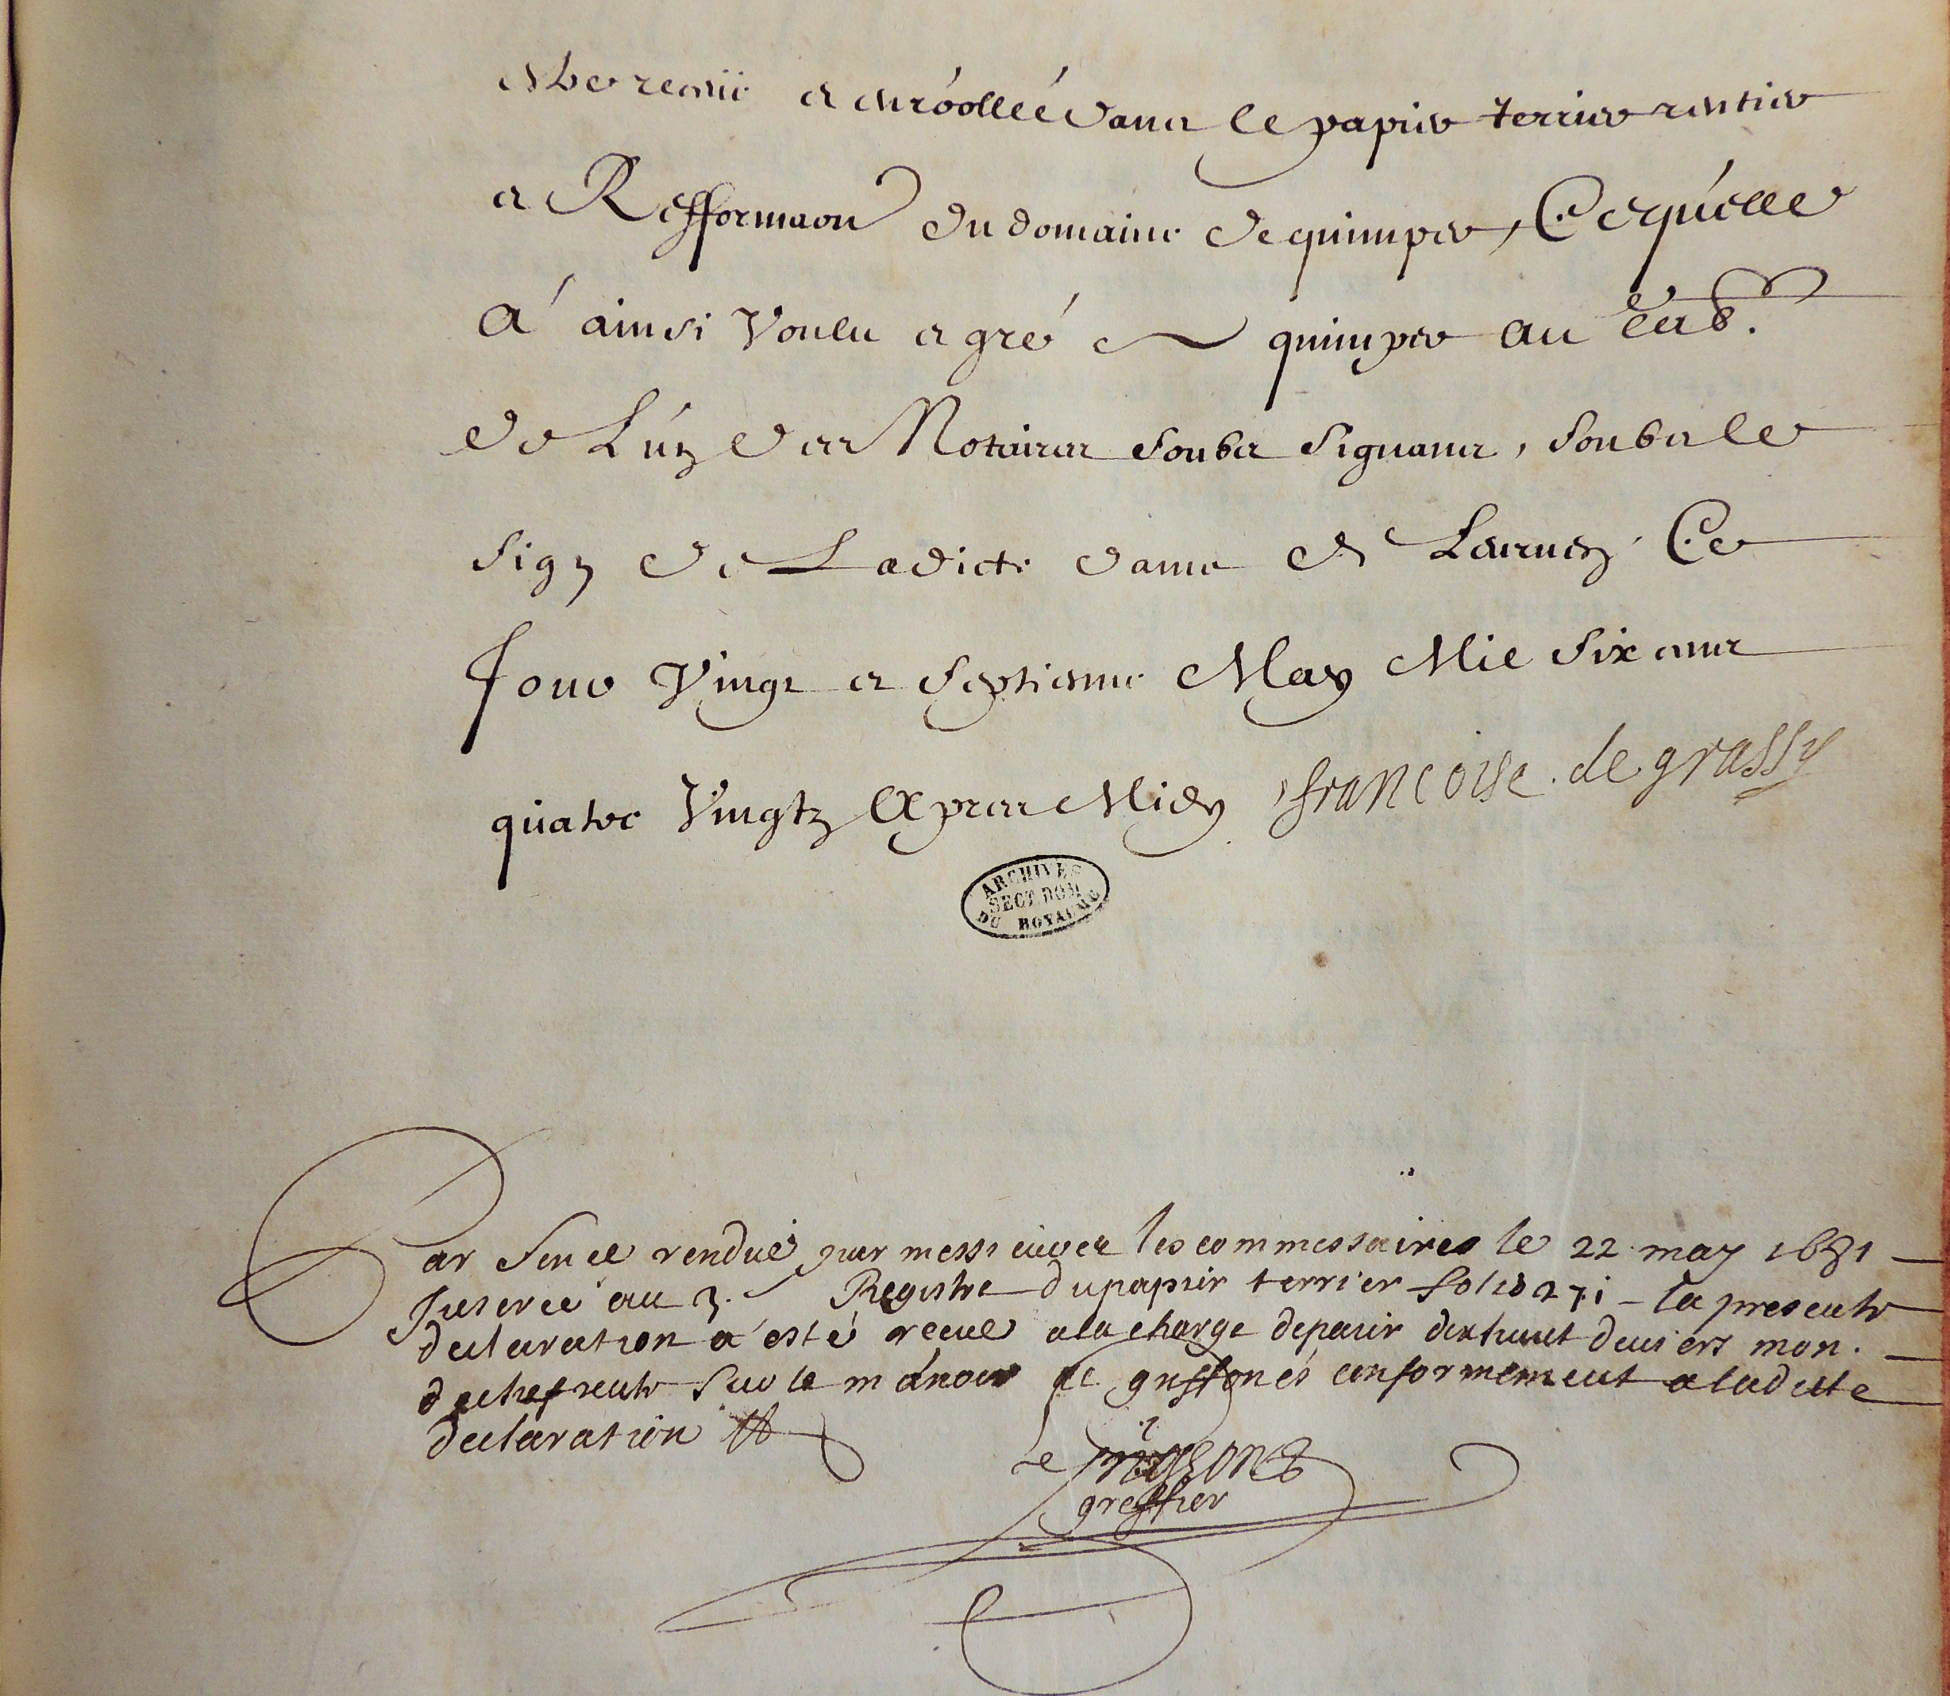 estre receüe et enróollée dans le papier terrier rentier
et Refformaon du domaine de quimper, Ce qúelle
á ainsi Voulu et gré quimper au Tab.
de Lún des Notaires soubz signans, soubz le
sign de Ladicte dame et Leurn Ce
Jour Vingt et septiesme May Mil six cens
quatre Vingtz Apres Midy francoise de grassy
ARCHIVES
SECT DOM
DU ROYAUME
Par Sence rendue par messieures les commessaires le 22 may 1681
Inseree au 3. Registre du papier terrier folio 271 la presente
declaration a esté receue a la charge de paier dixhuict deniers mon.
de chefrente sur le manoir de griffonés conformement a la ditte
declaration
Le
greffier